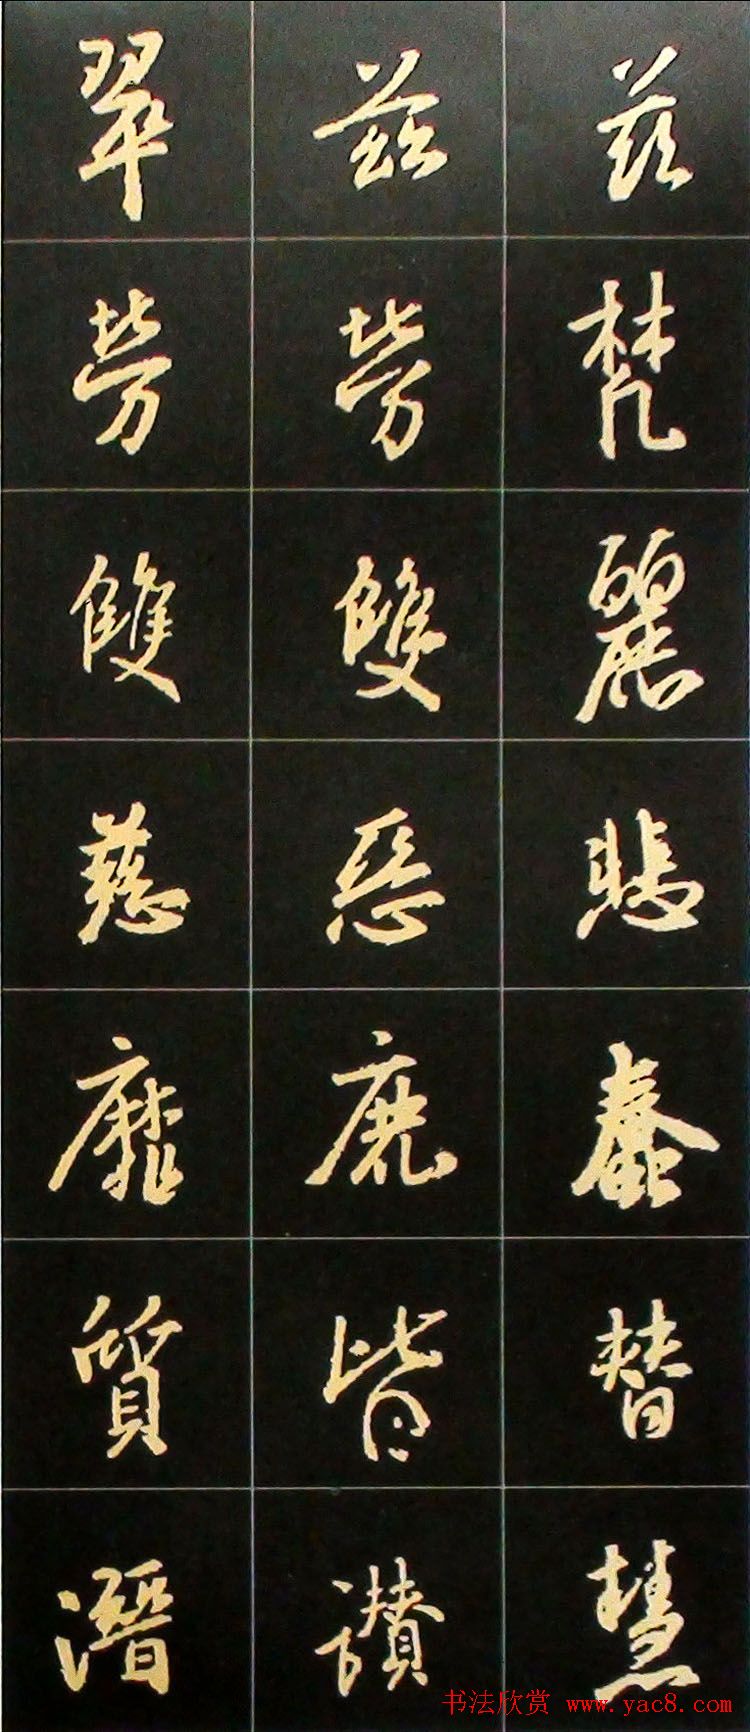 茲梵麗悲蠢替慧
茲勞雙惡鹿皆讚
翠勞雙慈靡質潛
书法欣赏 www.yac8.com